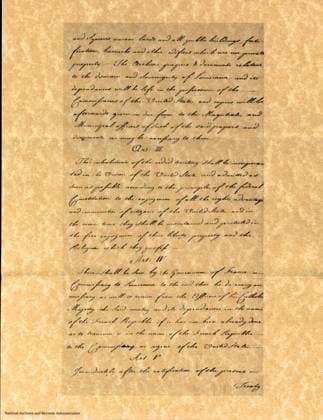 and Squares vacant lands and all public buildings, forti-
fications, barracks and other edifices which are not private
property.— The Archives, papers & documents relative
to the domain and Sovereignty of Louisiana and its
dependances will be left in the possession of the
Commissaries of the United States, and copies will be
afterwards given in due form to the Magistrates and
Municipal officers of such of the said papers and
documents as may be necessary to them.
Art: III
The inhabitants of the ceded territory shall be incorpora-
ted in the Union of the United States and admitted as
soon as possible according to the principles of the federal
Constitution to the enjoyment of all the rights, advantages
and immunities of citizens of the United States and in
the mean time they shall be maintained and protected in
the free enjoyment of their liberty, property and the
Religion which they profess.
Art: IV
There shall be Sent by the Government of France a
Commissary to Louisiana to the end that he do every act
necessary as well to receive from the Officers of his Catholic
Majesty the Said country and its dependances in the name
of the French Republic if it has not been already done
as to transmit it in the name of the French Republic
to the Commissary or agent of the United States
Art: V
Immediately after the ratification of the present
Treaty
National Archives and Records Administration